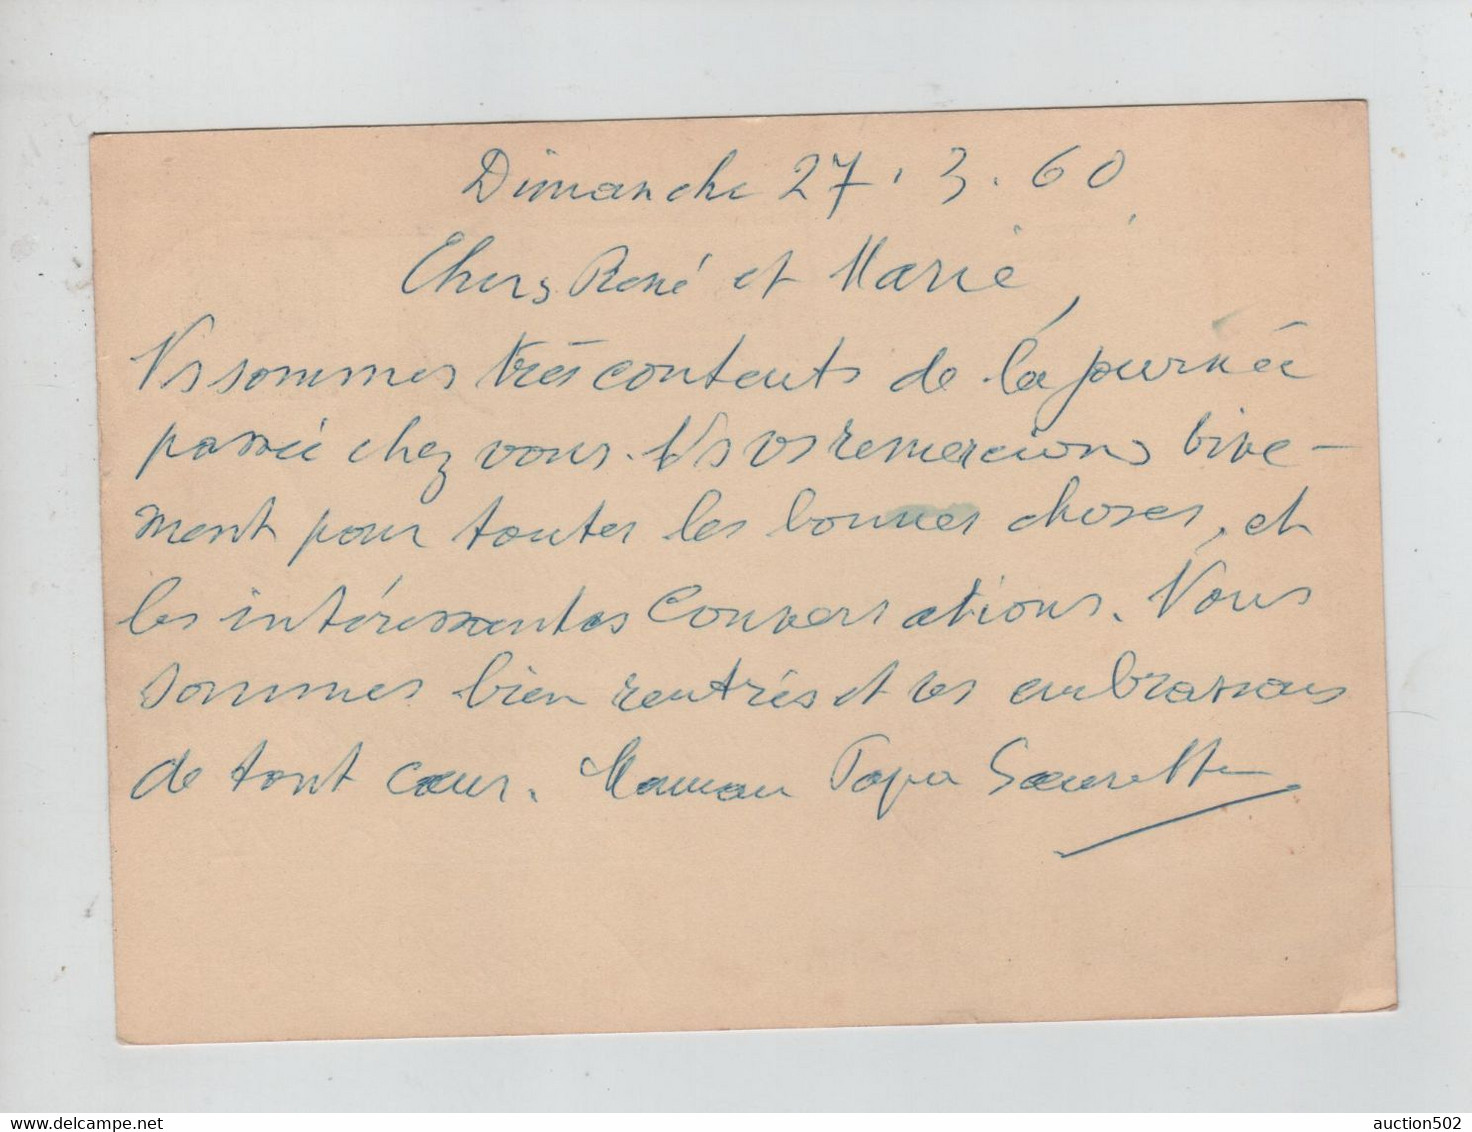 Dimanche 27.3.60
Chers René et Marie,
Ns sommes très contents de la journée
passée chez vous. Ns vs remercions vive-
ment pour toutes les bonnes choses, et
les intéressantes conversations. Nous
sommes bien rentrés et vs embrassons
de tout cœur. Maman Papa Sœurette
delcampe.net
auction502